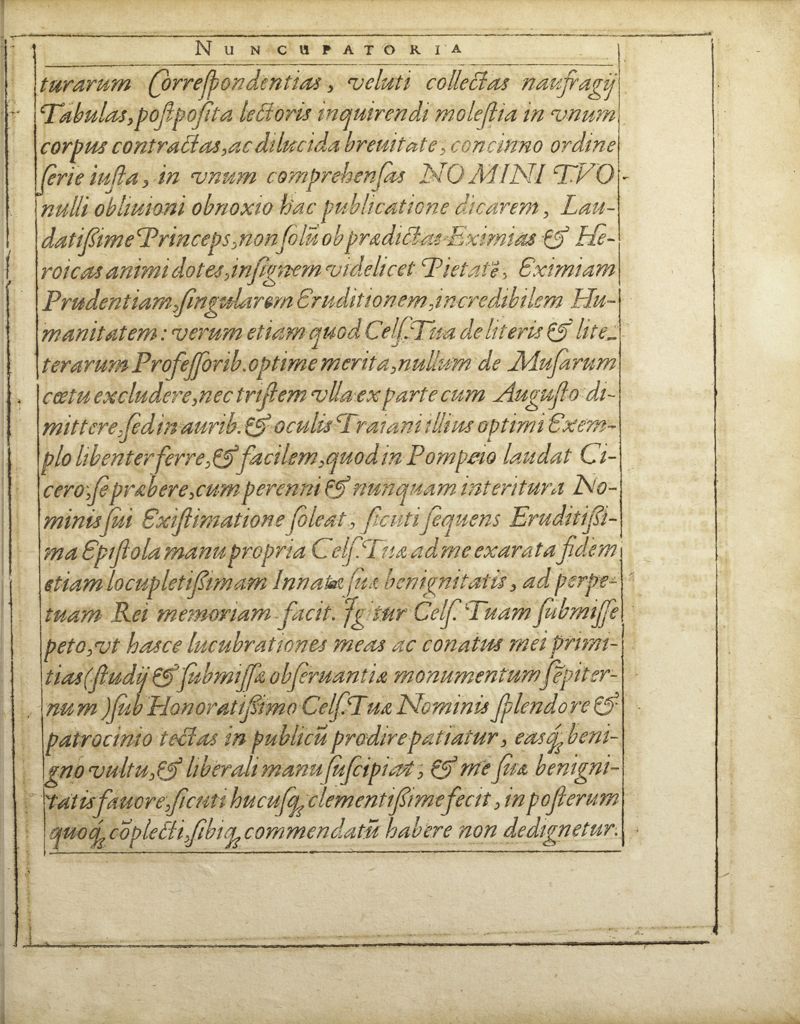 NUNCUPATORIA
turarum Correſpondentias, veluti collectas naufragij
Tabulas, poſtpoſita lectoris inquirendi moleſtia in vnum
corpus contractas, ac dilucida breuitate, concinno ordine
ſerie iuſta, in vnum comprehenſas NOMINI TVO
nulli obliuioni obnoxio hac publicatione dicarem, Lau-
datißime Princeps, non ſolū ob prædictas Eximias & He-
roicas animi dotes, inſignem videlicet Pietatē, Eximiam
Prudentiam, ſingularem Eruditionem, incredibilem Hu-
manitatem: verum etiam quod Celſ. Tua de literis & lite-
terarum Profeſſorib. optime merita, nullum de Muſarum
cœtu excludere, nec triſtem vlla ex parte cum Auguſto di-
mittere, ſed in aurib. & oculis Traiani illius optimi Exem-
plo libenter ferre, & facilem, quod in Pompeio laudat Ci-
cero, ſe præbere, cum perenni & nunquam interitura No-
minis ſui Exiſtimatione ſoleat, ſicuti ſequens Eruditißi-
ma Epiſtola manu propria Celſ. Tuæ ad me exarata fidem
etiam locupletißimam Innatæ ſuæ benignitatis, ad perpe-
tuam Rei memoriam facit. Igitur Celſ. Tuam ſubmiſſe
peto, vt haſce lucubrationes meas ac conatus mei primi-
tias (ſtudij & ſubmiſſæ obſeruantiæ monumentum ſēpiter-
num) ſub Honoratißimo Celſ. Tuæ Nominis ſplendore &
patrocinio tectas in publicū prodire patiatur, easq́; beni-
gno vultu, & liberali manu ſuſcipiat, & me ſuæ benigni-
tatis fauore, ſicuti hucuſq; clementißime fecit, in poſterum
quoq́; cōplecti, ſibiq; commendatū habere non dedignetur.